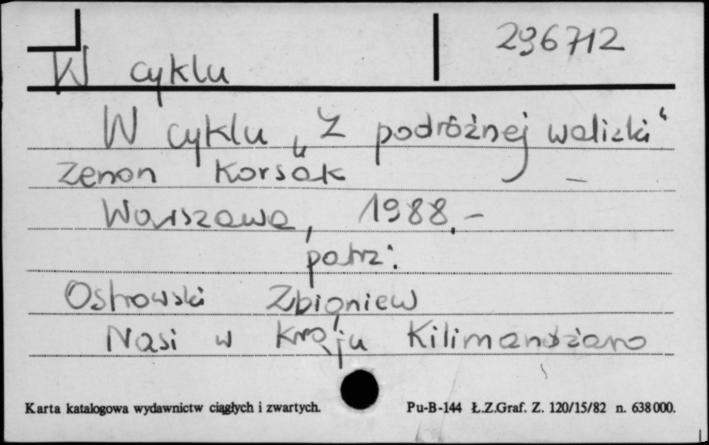 296712
W cyklu
W cyklu „Z podróżnej walizki“
Zenon Korsak –
Warszawa, 1988.–
patrz:
Ostrowski Zbigniew
Nasi w kraju Kilimandżaro
Karta katalogowa wydawnictw ciągłych i zwartych. Pu-B-144 Ł.Z.Graf. Z. 120/15/82 n. 638000.